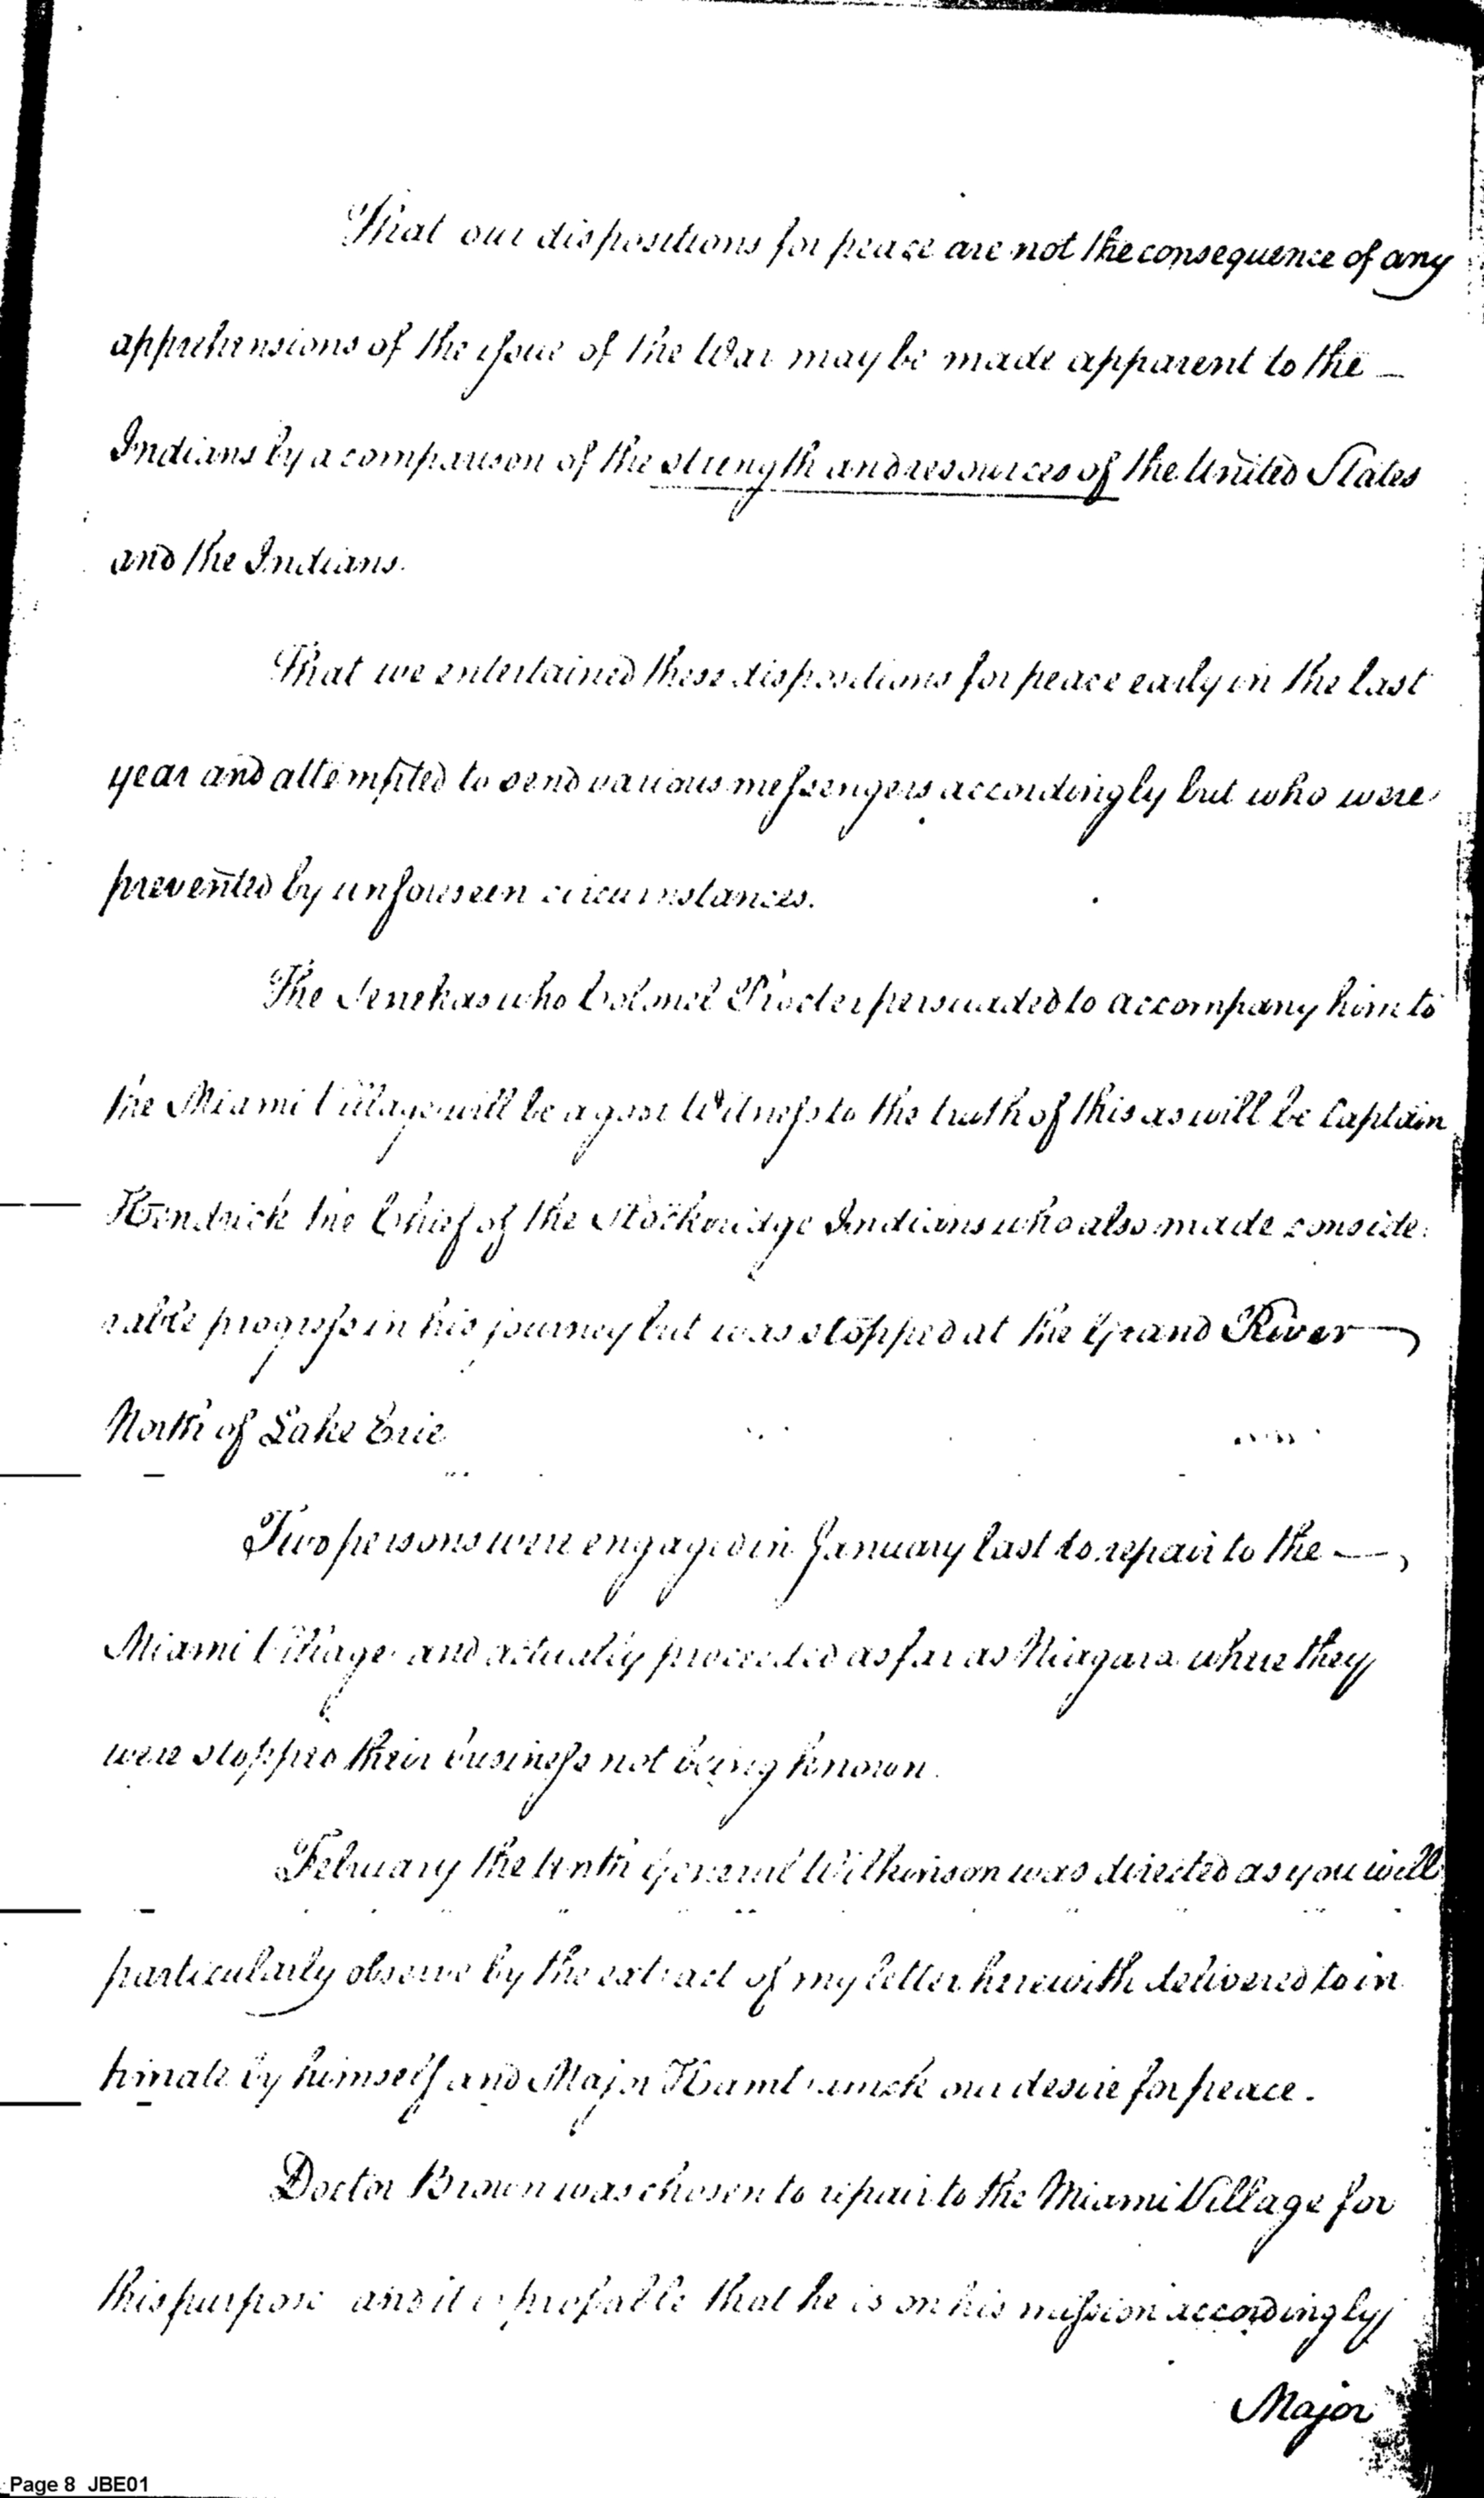 That our dispositions for peace are not the consequence of any
apprehensions of the issue of the War may be made apparent to the –
Indians by a comparison of the strength and resources of the United States
and the Indians.
That we entertained these dispositions for peace early in the last
year and attempted to send various messengers accordingly but who were
prevented by unforeseen circumstances.
The Senekas who Colonel Procter persuaded to accompany him to
the Miami Village will be a good Witness to the truth of this as will be Captain
Hendrick the Chief of the Stockbridge Indians who also made conside
rable progress in his journey but was stopped at the Grand River
North of Lake Erie
Two persons were engaged in January last to repair to the —
Miami Village and actually proceeded as far as Niagara where they
were stopped their business not being known.
February the tenth General Wilkinson was directed as you will
particularly observe by the extract of my letter herewith delivered to in
timate by himself and Major Hamtramck our desire for peace.
Doctor Brown was chosen to repair to the Miami Village for
this purpose and it is probable that he is on his mission accordingly
Major
Page 8 JBE01